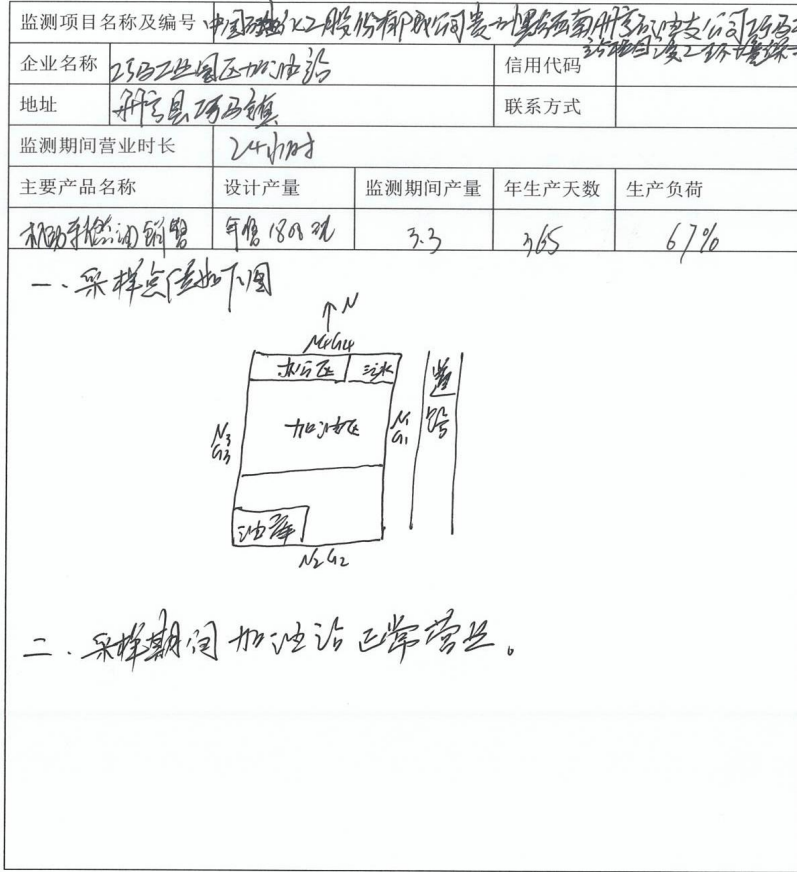 监测项目名称及编号 中国石油化工股份有限公司贵州黔西南册亨石油支公司巧马
项目竣工环境保
企业名称 巧马工业园区加油站 信用代码
地址 册亨县巧马镇 联系方式
监测期间营业时长 24小时
主要产品名称 设计产量 监测期间产量 年生产天数 生产负荷
机动车燃油销售 年售1800吨 3.3 365 67%
一.采样点位如下图
↑N
N4G4
办公区
加油区
道路
N3 N1
G3 G1
油库
N2G2
二.采样期间加油站正常营业。